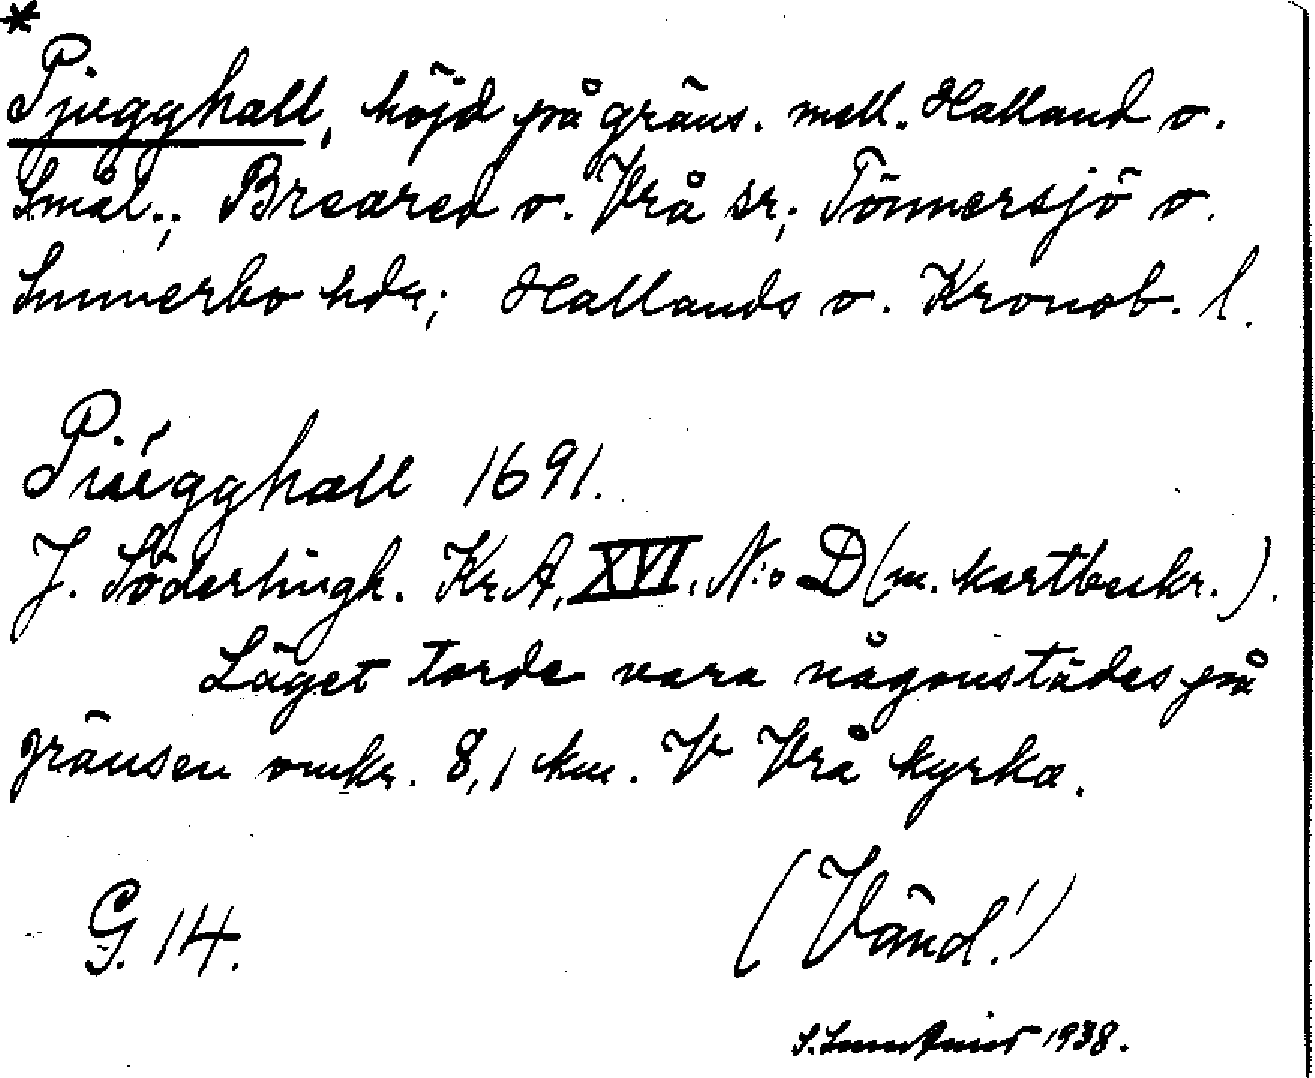 *
Pjugghall, höjd på gräns. mell. Halland o.
Smål.; Breared o. Vrå sr; Tönnersjö o.
Sunnerbo hdr; Hallands o. Kronob. l.
Piúgghall 1691.
J. Söderlingk. Kr.A. XVI. N:o D (m. kartbeskr.).
Läget torde vara någonstädes på
gränsen omkr. 8,1 km. V Vrå kyrka.
G. 14.
(Vänd!)
1938.